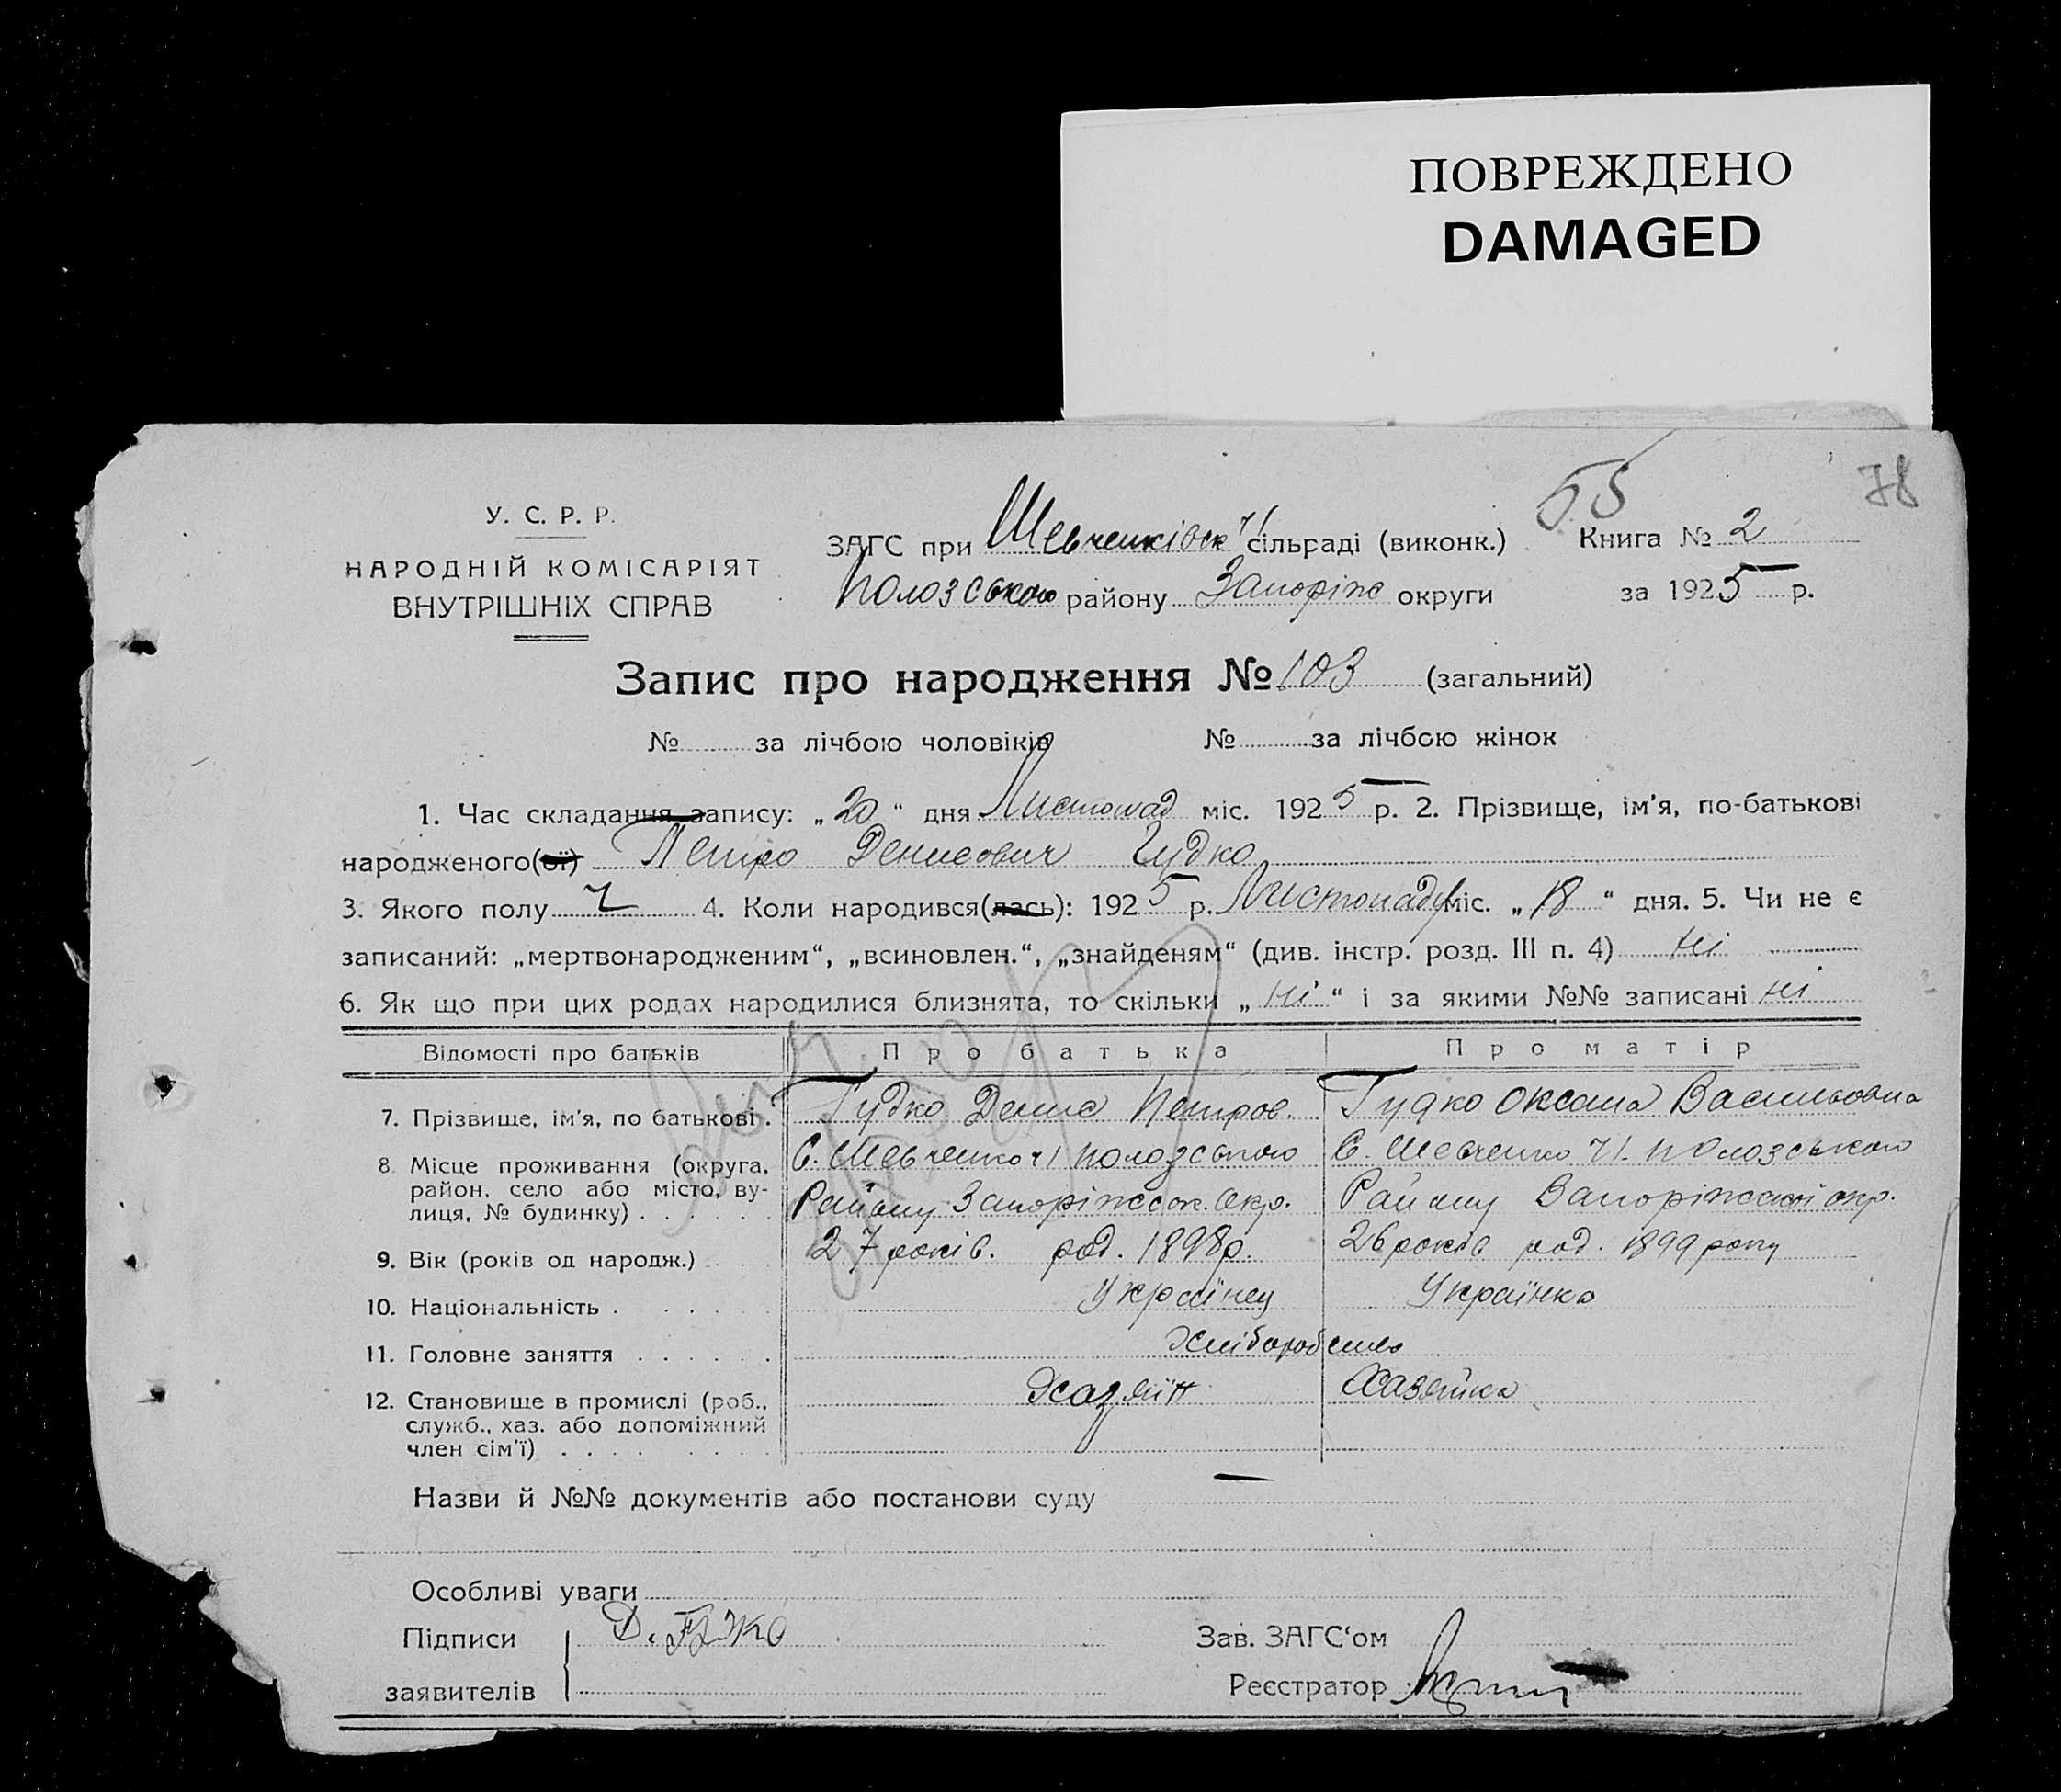 ПОВРЕЖДЕНО
DAMAGED
55
78
У. С. Р. Р.
НАРОДНІЙ КОМІСАРІЯТ
ВНУТРІШНІХ СПРАВ
ЗАГС при Шевченківськ ч1 сільраді (виконк.)
Полозського району Запоріж округи
Книга № 2
за 1925 р.
Запис про народження № 103 (загальний)
№ за лічбою чоловіків № за лічбою жінок
1. Час складання запису: „20“ дня Листопад міс. 1925 р. 2. Прізвище, ім'я, по-батькові
народженого(ої) Петро Денисович Гудко
3. Якого полу ч 4. Коли народився(лась): 1925 р. Листопаду міс. „18“ дня. 5. Чи не є
записаний: „мертвонародженим“, „всиновлен.“, „знайденям“ (див. інстр. розд. III п. 4) ні
6. Як що при цих родах народилися близнята, то скільки „ні“ і за якими №№ записані ні
Відомості про батьків Про батька Про матір
7. Прізвище, ім'я, по батькові. Гудко Денис Петров. Гудко Оксана Васильовна
8. Місце проживання (округа, С. Шевченко ч1 Полозського С. Шевченко ч1. Полозського
район, село або місто, ву-
лиця, № будинку) Району Запоріжськ. Окр. Району Запоріжської окр.
9. Вік (років од народж.) 27 років. род. 1898р. 26 років род. 1899 року
10. Національність Українец Українка
11. Головне заняття Хліборобство
12. Становище в промислі (роб., Хазяїн Хазяйка
служб., хаз. або допоміжний
член сім'ї)
Назви й №№ документів або постанови суду —
Особливі уваги
Підписи Д. Гудко Зав. ЗАГС'ом
заявителів Реєстратор